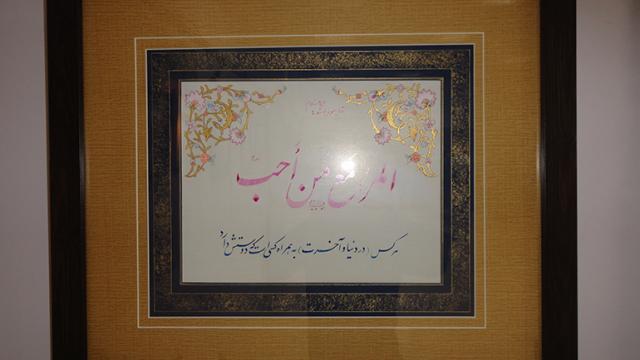 المرء مع من أحب
هرکس (در دنیا و آخرت) به همراه کسی است که دوستش دارد